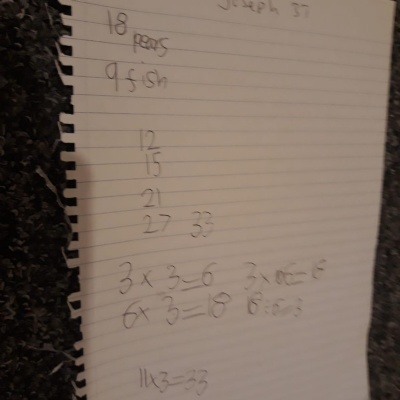 Joseph 37
18
pears
9 fish
12
15
21
27 33
3 x 3=6 3 x 6=18
6x 3=18 18:6=3
11x3=33